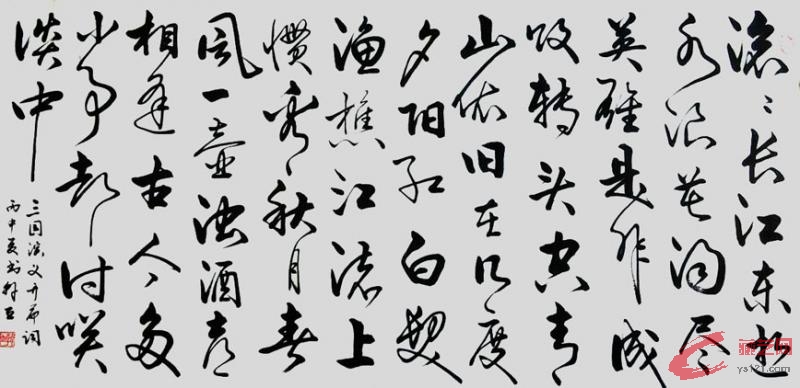 滚滚长江东逝
水浪花淘尽
英雄是非成
败转头空青
山依旧在几度
夕阳红白发
渔樵江渚上
惯看秋月春
风一壶浊酒喜
相逢古今多
少事都付笑
谈中
三国演义开篇词
丙申夏书